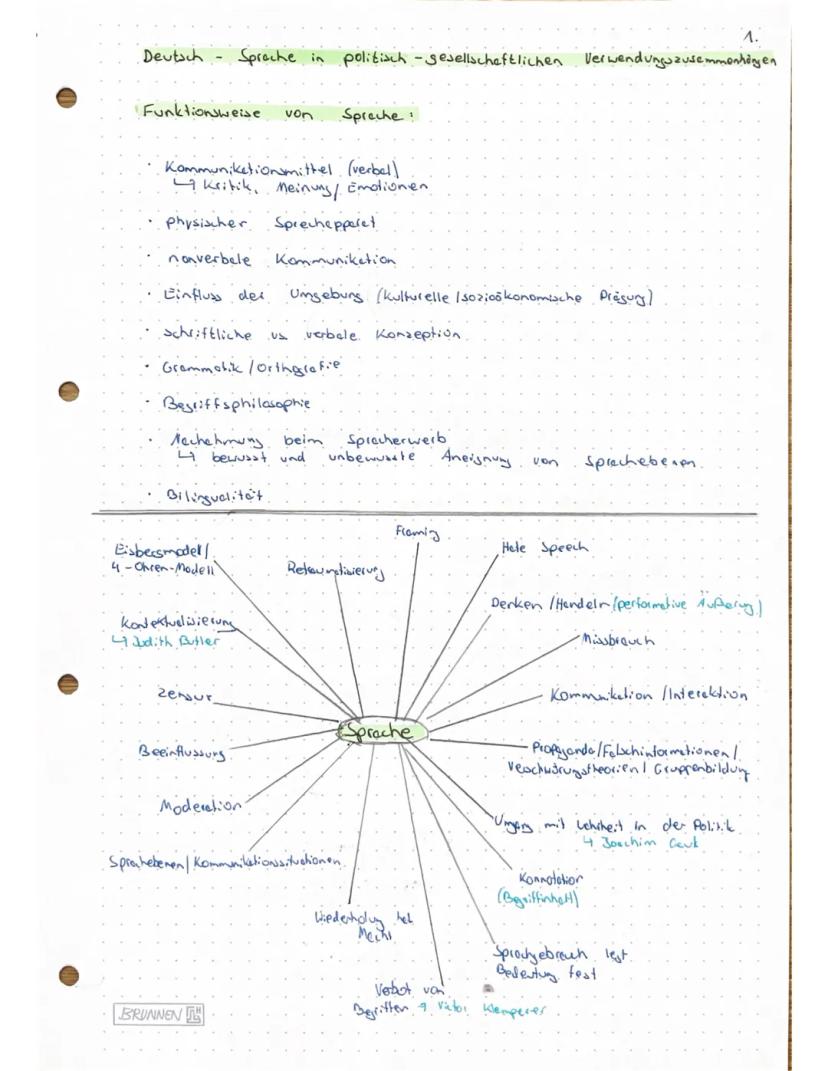 1.
Deutsch - Sprache in politisch-gesellschaftlichen Verwendungszusammenhängen
Funktionsweise von Sprache:
· Kommunikationsmittel (verbal)
↳ Kritik, Meinung / Emotionen
· physischer Sprechapparat
· nonverbale Kommunikation
· Einfluss der Umgebung (kulturelle / sozioökonomische Prägung)
· schriftliche vs verbale Konzeption
· Grammatik / Orthografie
· Begriffsphilosophie
· Nachahmung beim Spracherwerb
↳ bewusst und unbewusste Aneignung von Sprachebenen
· Bilingualität
Framing
Eisbergmodell /
4-Ohren-Modell
Retraumatisierung
Hate Speech
Denken / Handeln (performative Äußerung)
Kontextualisierung
↳ Judith Butler
Missbrauch
Zensur
Kommunikation / Interaktion
Sprache
Beeinflussung
Propaganda / Falschinformationen /
Verschwörungstheorien / Gruppenbildung
Moderation
Umgang mit Wahrheit in der Politik
↳ Joachim Gauk
Sprachebenen / Kommunikationssituationen
Konnotation
(Begriffinhalt)
Wiederholung hat
Macht
Sprachgebrauch legt
Bedeutung fest
Verbot von
Begriffen → Victor Klemperer
BRUNNEN